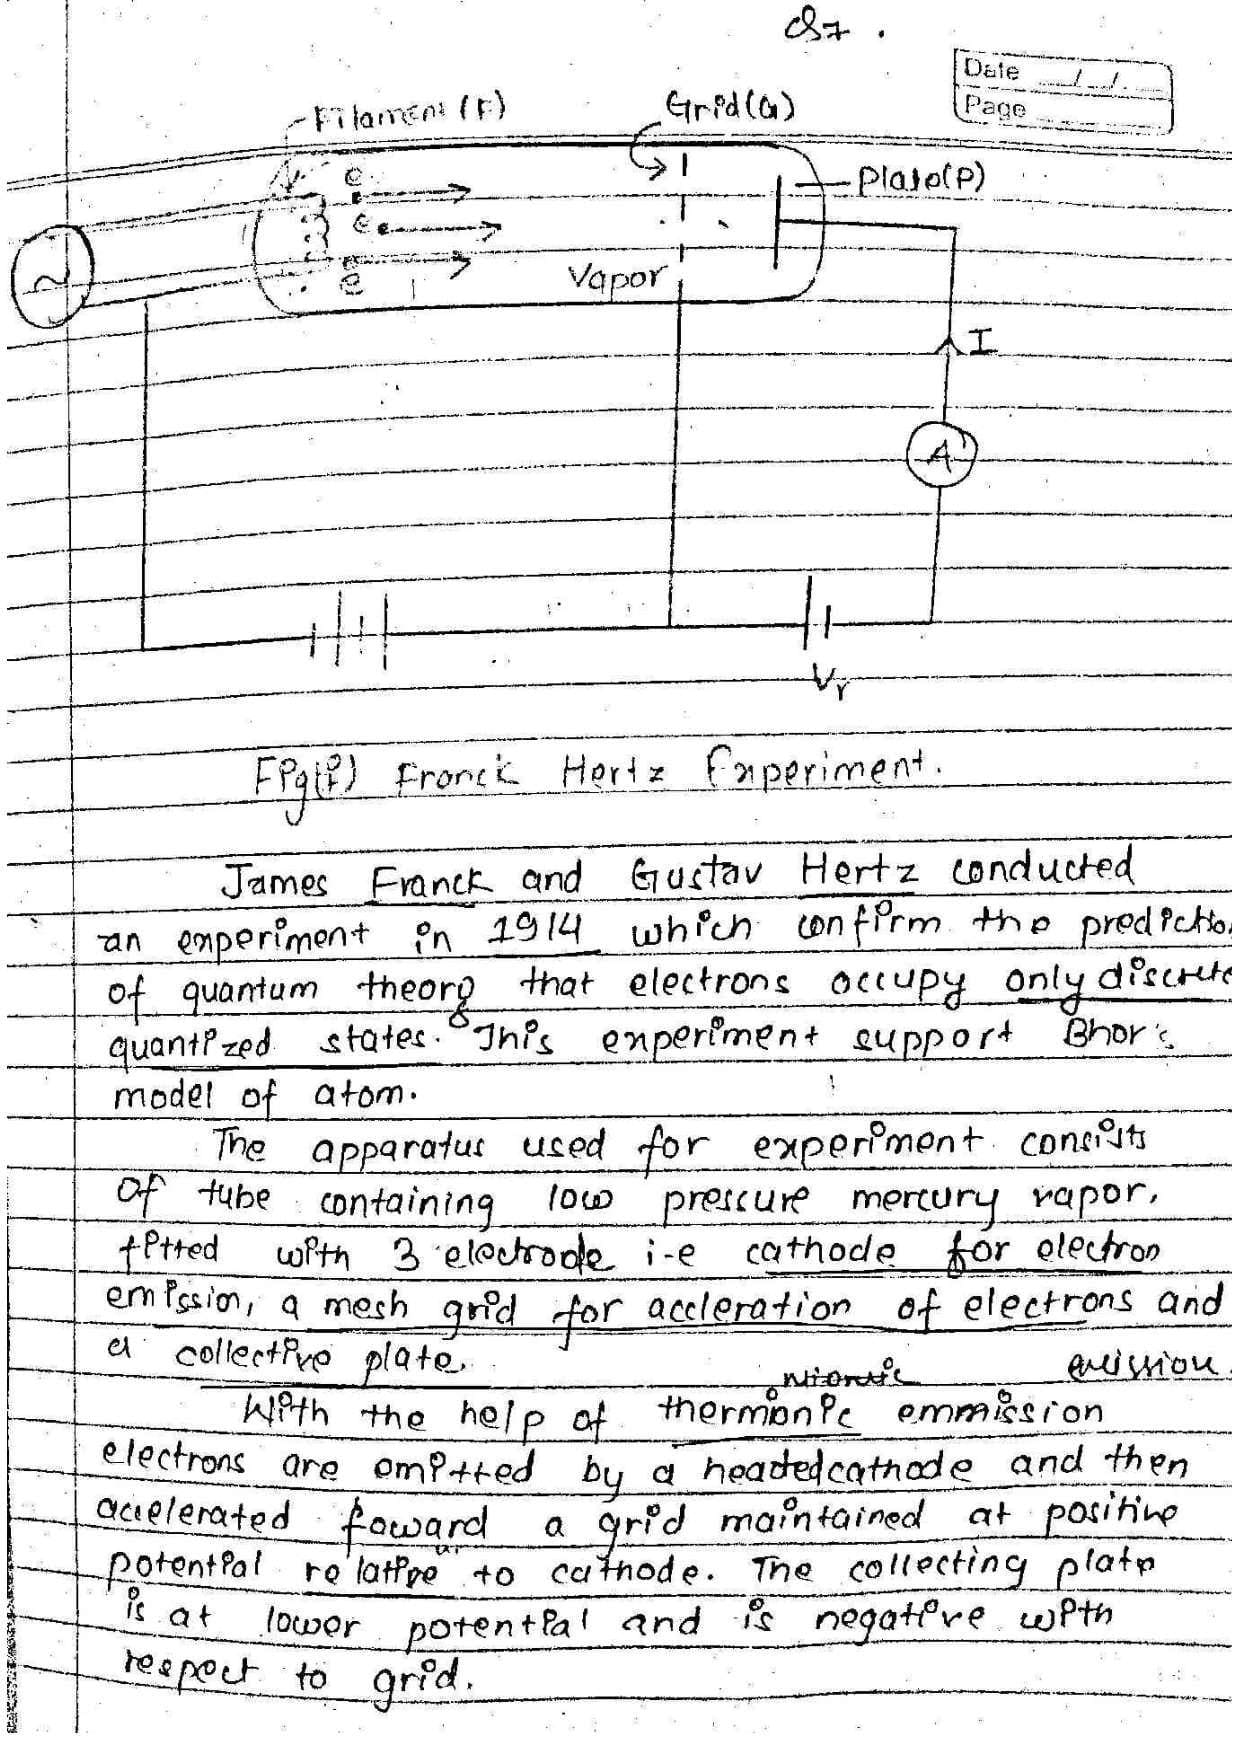 Date / /
Page
Filament (F)
Grid(G)
Plate(P)
e
e
e
Vapor
~
I
A
Vr
Fig(i) Franck Hertz Experiment.
James Franck and Gustav Hertz conducted
an experiment in 1914 which confirm the predictio
of quantum theory that electrons occupy only discrete
quantized states. This experiment support Bhor's
model of atom.
The apparatus used for experiment consists
of tube containing low pressure mercury vapor,
fitted with 3 electrode i-e cathode for electron
emission, a mesh grid for accleration of electrons and
a collective plate.
emission
With the help of thermionic emmission
electrons are emitted by a headed cathode and then
accelerated foward a grid maintained at positive
potential relative to cathode. The collecting plate
is at lower potential and is negative with
respect to grid.